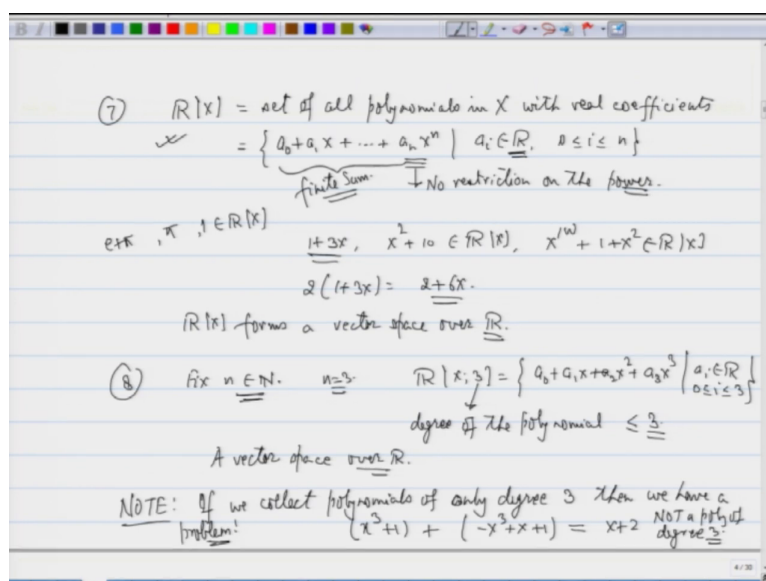 ⑦ ℝ[x] = set of all polynomials in X with real coefficients
= { a₀+a₁x + ... + aₙxⁿ | aᵢ ∈ ℝ, 0 ≤ i ≤ n}
finite sum. ↓ No restriction on the power.
e+π, π, 1 ∈ ℝ[x]
1+3x, x²+10 ∈ ℝ[x], x¹⁰⁰ + 1+x² ∈ ℝ[x]
2(1+3x) = 2+6x.
ℝ[x] forms a vector space over ℝ.
⑧ Fix n ∈ ℕ. n=3. ℝ[x;3] = { a₀+a₁x+a₂x²+a₃x³ | aᵢ ∈ ℝ 0≤i≤3}
degree of the polynomial ≤ 3.
A vector space over ℝ.
NOTE: If we collect polynomials of only degree 3 then we have a
problem! (x³+1) + (-x³+x+1) = x+2 NOT a poly of
degree 3.
4/30